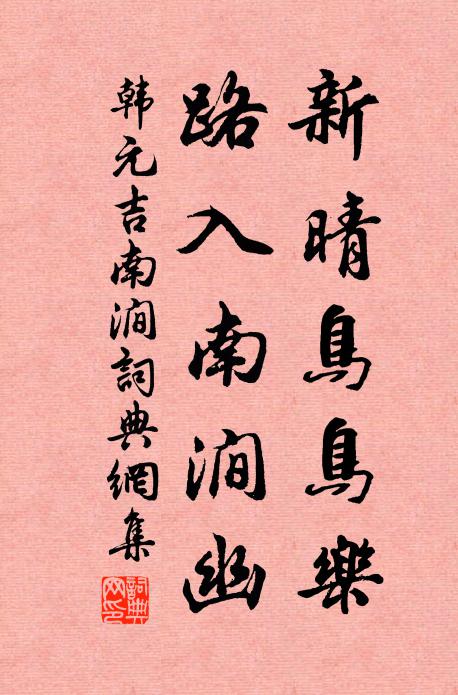 新晴鳥鳥樂
路入南澗幽
韓元吉南澗詞典網集
詞典
网印